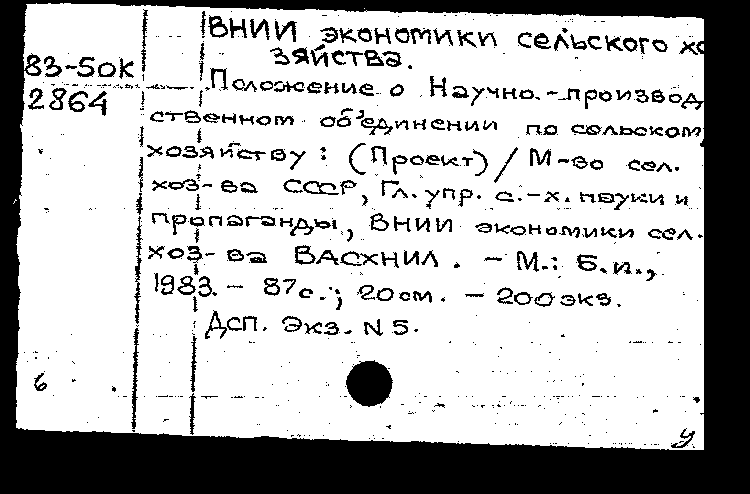 ВНИИ экономики сельского хо
зяйства.
83-50к
Положение о Научно.-производ
2864
ственном об'единении по сельском
хозяйству: (Проект) / М-во сел.
хоз-ва СССР, Гл. упр. с.-х. науки и
пропаганды, ВНИИ экономики сел.
хоз-ва ВАСХНИЛ. - М.: Б.и.,
1983. - 87с.; 20см. - 200экз.
Дсп. Экз. N 5.
6
У